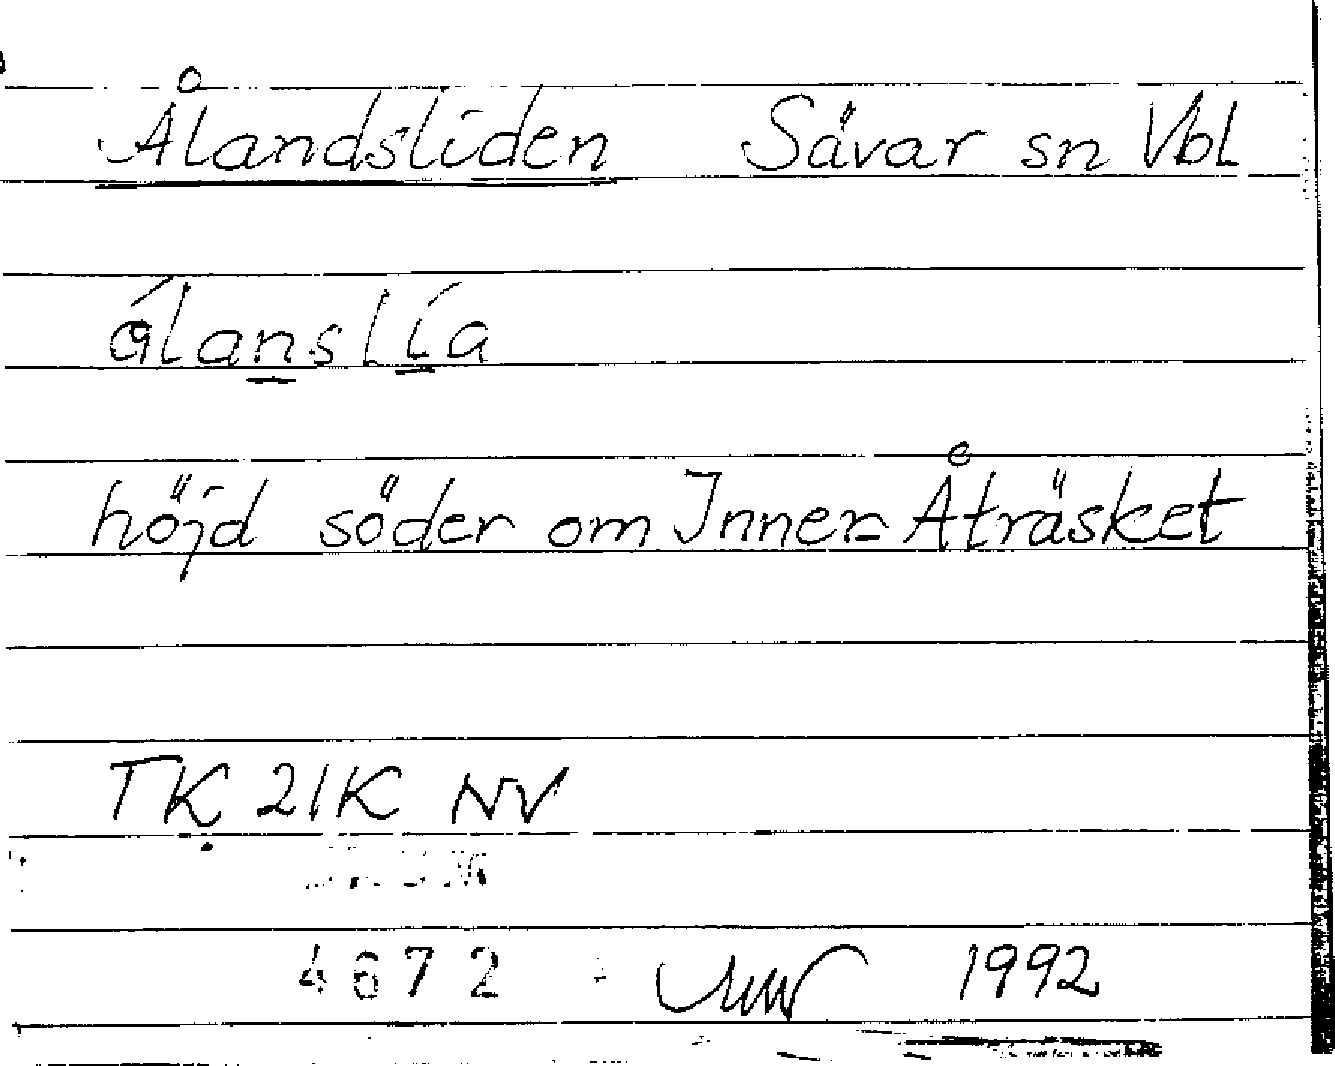 Ålandsliden Sävar sn Vbl
ålanslía
höjd söder om Inner-Åträsket
TK 21K NV
4672 1992